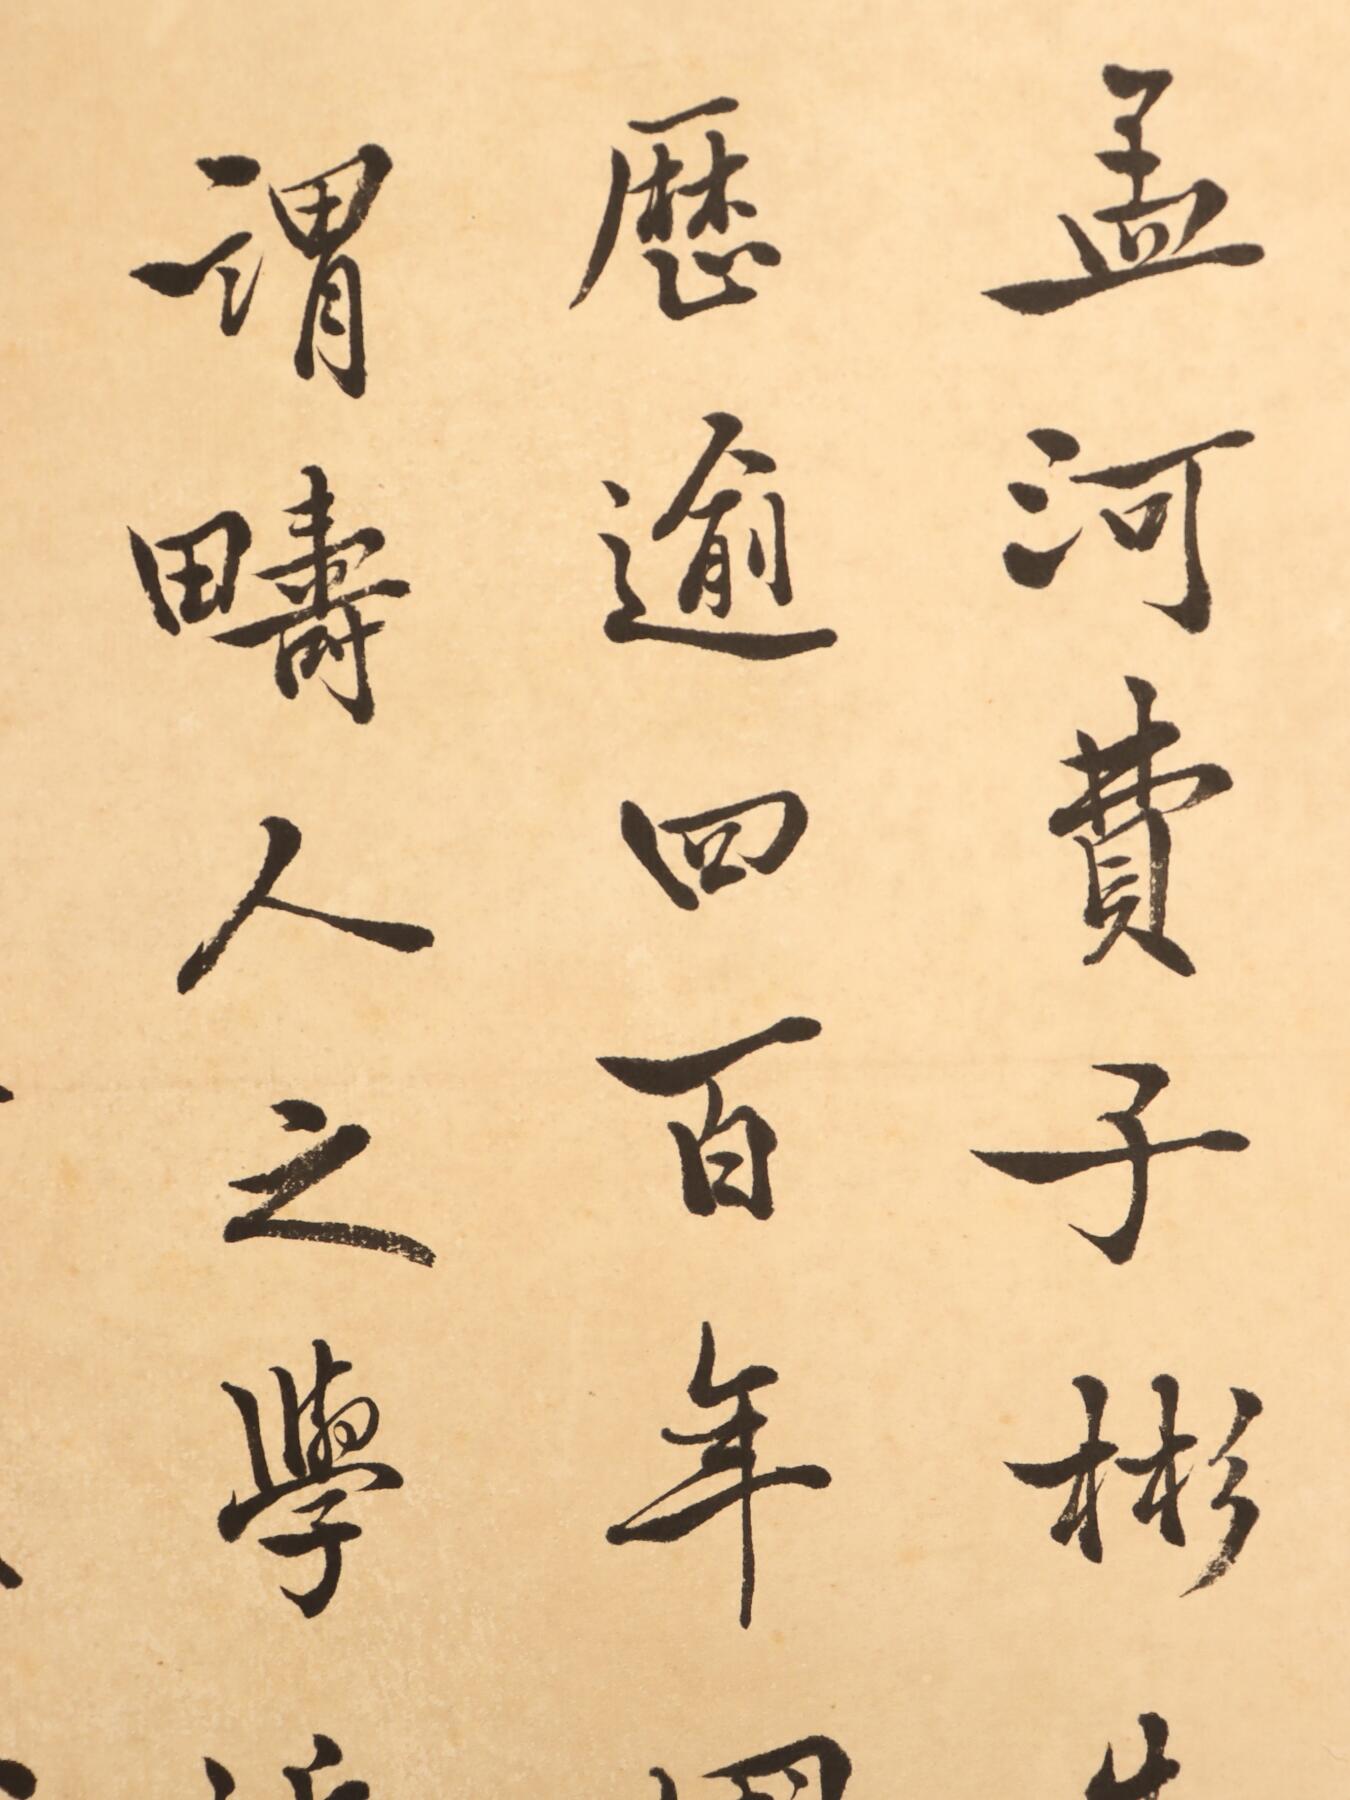 孟河費子彬
歷逾四百年
謂疇人之學